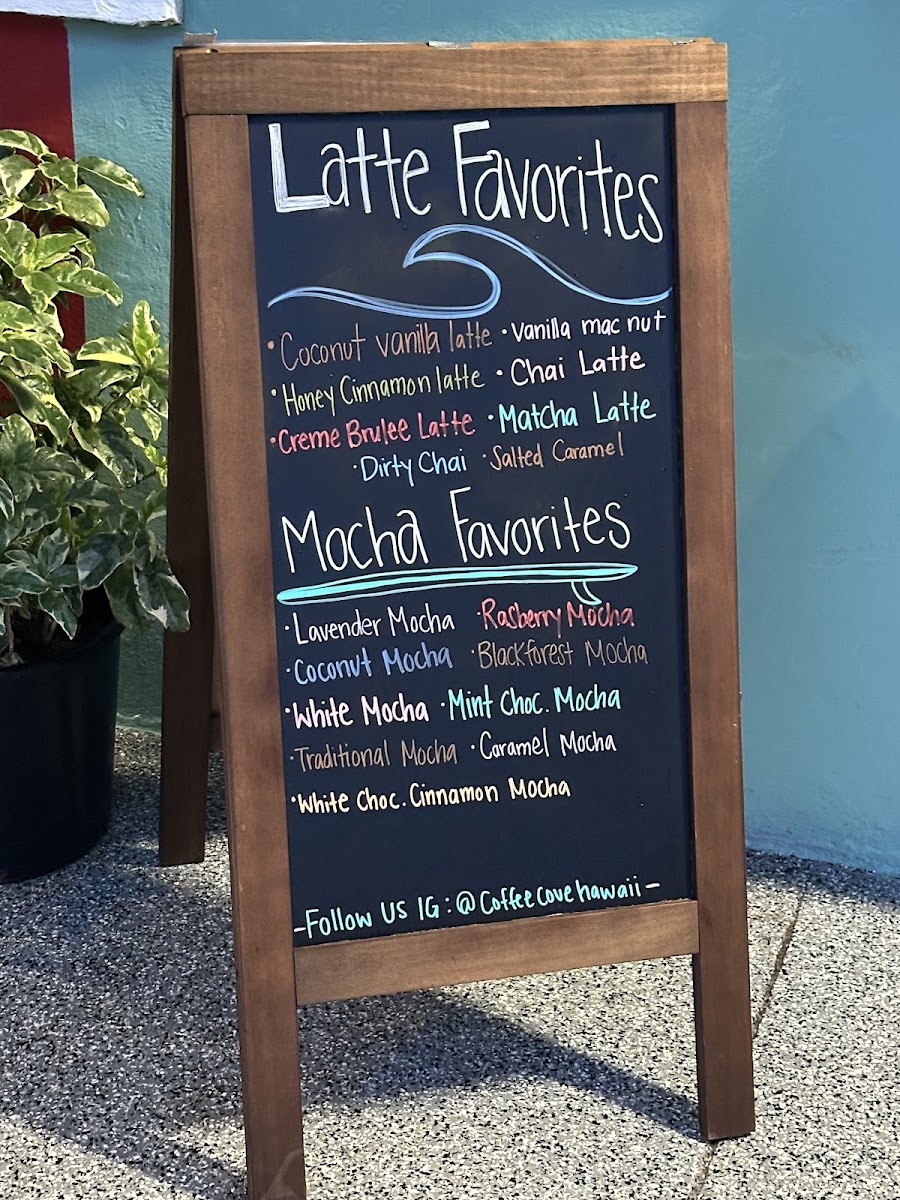 Latte Favorites
·Coconut vanilla latte ·Vanilla mac nut
·Honey Cinnamon latte ·Chai Latte
·Creme Brulee Latte ·Matcha Latte
·Dirty Chai ·Salted Caramel
Mocha Favorites
·Lavender Mocha ·Rasberry Mocha
·Coconut Mocha ·Blackforest Mocha
·White Mocha ·Mint Choc. Mocha
·Traditional Mocha ·Caramel Mocha
·White Choc. Cinnamon Mocha
-Follow US IG: @Coffeecovehawaii-